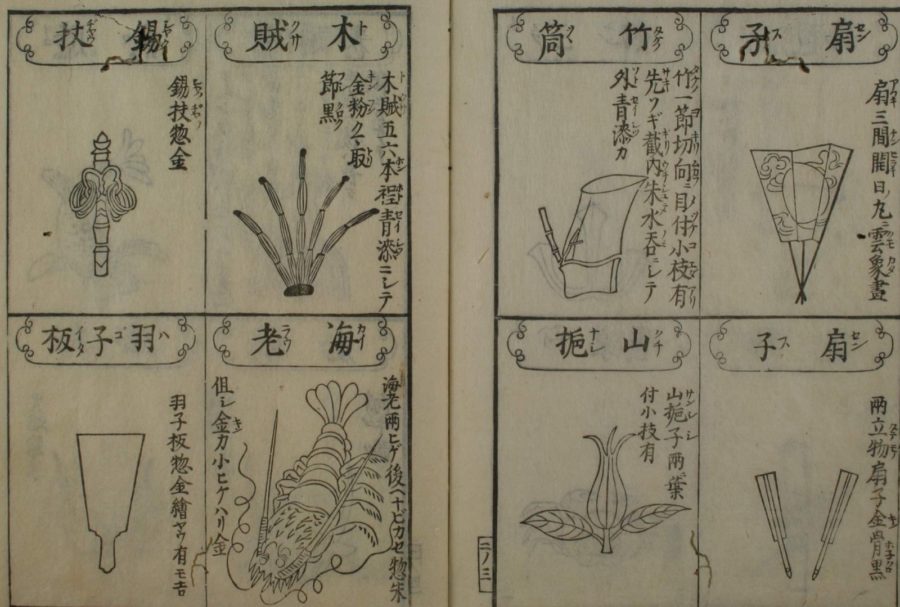 扇子
扇三間開日ノ丸ニ雲象畫
竹筒
竹一節切向ニ目付小枝有
先ソギ截内朱水呑ニシテ
外青漆カ
扇子
両立物扇子金骨黒
山梔
山梔子両ニ葉
付小枝有
二ノ三
木賊
木賊五六本裎青漆ニシテ
節黒
錫杖
錫杖惣金
海老
海老両ヒゲ後ヘナビカセ惣朱
但シ金カ小ヒゲハリ金
羽子板
羽子板惣金繪ヤウ有モ吉